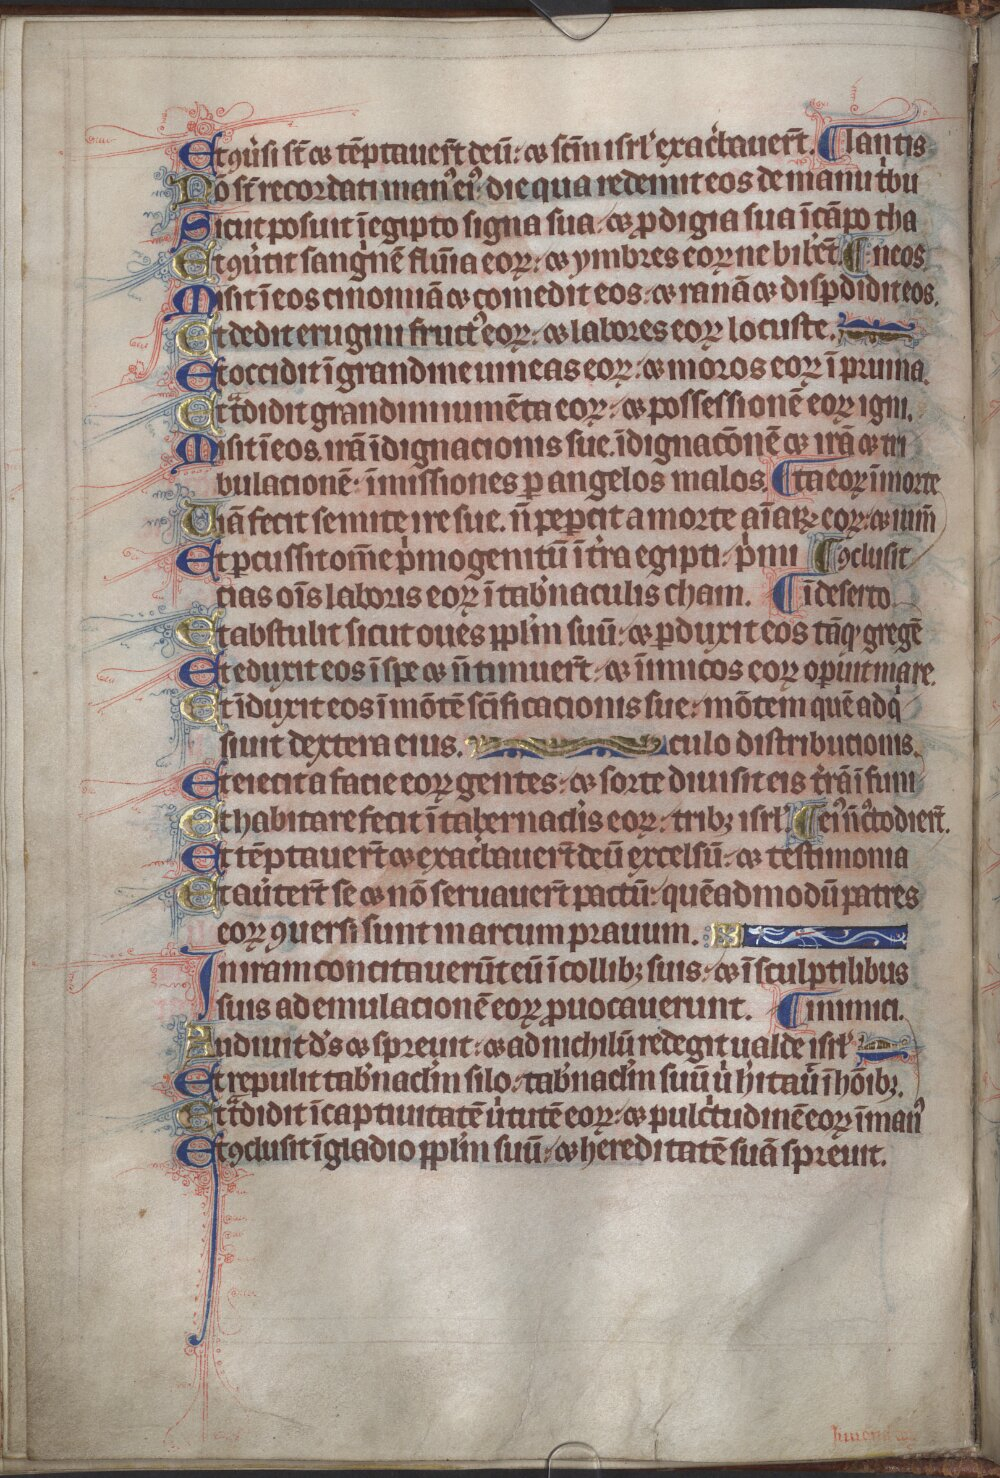 Et ꝯu̓si st̄ ⁊ tēptauer̄t deū: ⁊ scm̄ isrl̓ exac̓bauer̄t. lantis
Nō st̄ recordati manꝰ eiꝰ: die qua redemit eos de manu t̓bu
Sicut posuit ī egipto signa sua: ⁊ ꝓdigia sua ī cāpo tha
Et ꝯu̓tit sanguinē flumīa eoꝝ: ⁊ ymbres eoꝝ ne bibēt. neos
Misit ī eos cinomiā ⁊ comedit eos: ⁊ ranā ⁊ disꝑdidit eos.
Et dedit erugini fructꝰ eoꝝ: ⁊ labores eoꝝ locuste.
Et occidit ī grandine uineas eoꝝ: ⁊ moros eoꝝ ī pruina.
Et tͣdidit grandini iumēta eoꝝ: ⁊ possessionē eoꝝ igni.
Misit ī eos irā īdignacionis sue. īdignacōnē ⁊ irā ⁊ tri
bulacionē: īmissiones ꝑ angelos malos. ta eoꝝ ī morte
Uiā fecit semite ire sue. n̄ peꝑcit a morte aīabꝫ eoꝝ: ⁊ iumē
Et ꝑcussit om̄e pͥmogenitū ī tr̓ra egipti: pͥmi ꝯclusit
cias oīs laboris eoꝝ ī tab̓naculis cham. ī deserto.
Et abstulit sicut oues ppl̄m suū: ⁊ ꝑduxit eos tāqͣ gregē
Et eduxit eos ī spe ⁊ n̄ timuer̄t: ⁊ inimicos eoꝝ oꝑuit mare.
Et īduxit eos ī mōtē scīficacionis sue: mōtem quē adqͥ
siuit dextera eius. culo distribucionis.
Et eiecit a facie eoꝝ gentes: ⁊ sorte diuisit eis tr̓rā ī funi
Et habitare fecit ī tabernacl̓is eoꝝ: tribꝫ isrl̓. eiꝰ n̄ cꝰtodier̄t.
Et tēptauer̄t ⁊ exac̓bauer̄t deū excelsū: ⁊ testimonia
Et au̓ter̄t se ⁊ nō seruauer̄t pactū: quēadmodū patres
eoꝝ ꝯuersi sunt in arcum prauum.
In iram concitauerūt eū ī collibꝫ suis: ⁊ ī sculptilibus
suis ad emulacionē eoꝝ ꝓuocauerunt. inimici.
Audiuit d̓s ⁊ spreuit: ⁊ ad nichilū redegit ualde isrl̓
Et repulit tab̓nacl̓m silo: tab̓nacl̓m suū u̓ h̓itau̓ ī hōibꝫ.
Et tͣdidit ī captiuitatē u̓tutē eoꝝ: ⁊ pulc̓tudinē eoꝝ ī manꝰ
Et ꝯclusit ī gladio ppl̄m suū: ⁊ hereditatē suā spreuit.